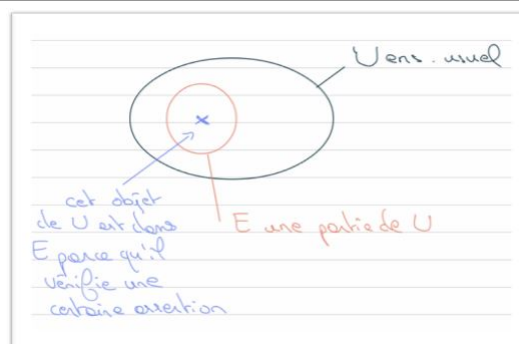 U ens. usuel
cet objet
de U est dans
E parce qu'il
vérifie une
certaine assertion
E une partie de U